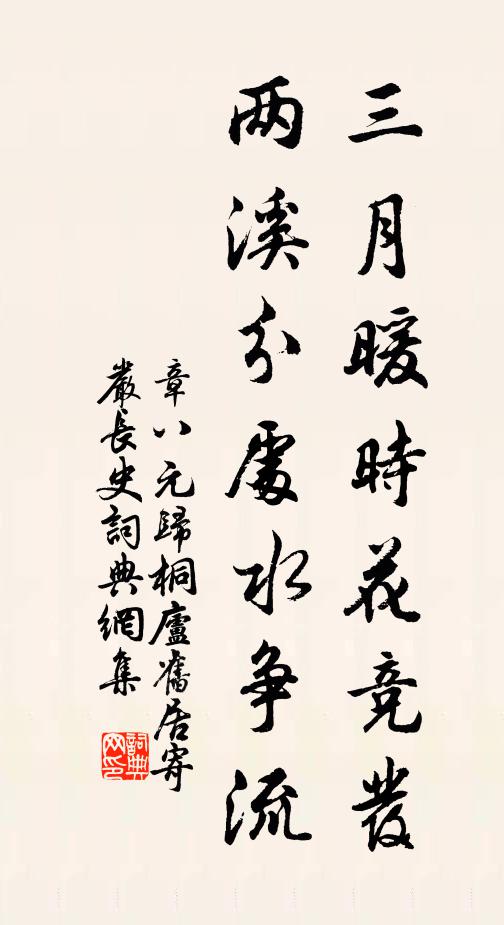 三月暖時花竞發
两溪分處水争流
章八元歸桐廬舊居寄
嚴長史詞典網集
詞典网印